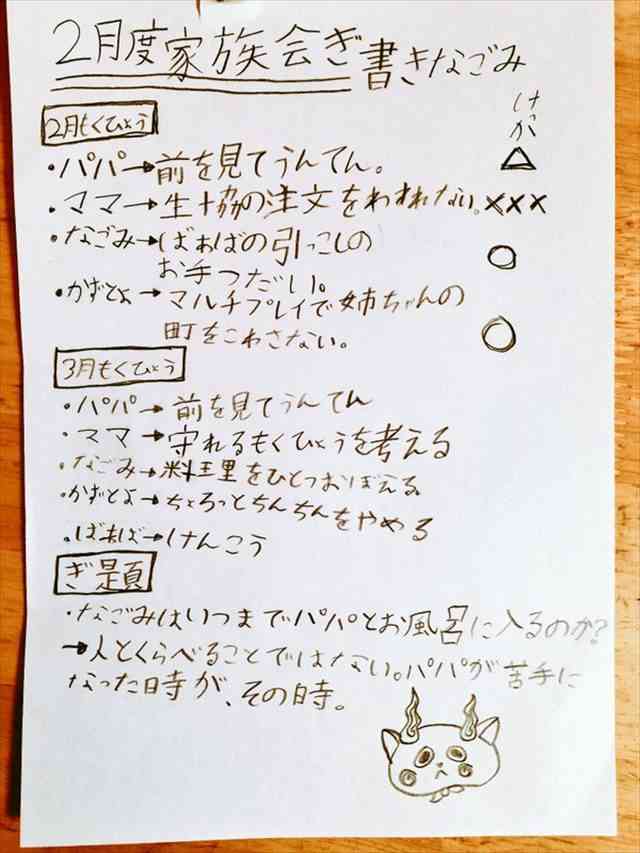 2月度家族会ぎ 書きなごみ
けか
2月もくひょう
・パパ→前を見てうんてん。 △
・ママ→生協の注文をわすれない。×××
・なごみ→ばぁばの引っこしの
お手つだい。 ○
・かずとよ→マルチプレイで姉ちゃんの
町をこわさない。 ○
3月もくひょう
・パパ→前を見てうんてん
・ママ→守れるもくひょうを考える
・なごみ→料理をひとつおぼえる。
・かずとよ→ちょろっとちんちんをやめる
・ばぁば→けんこう
ぎ題
・なごみはいつまでパパとお風呂に入るのか?
→人とくらべることではない。パパが苦手に
なった時が、その時。